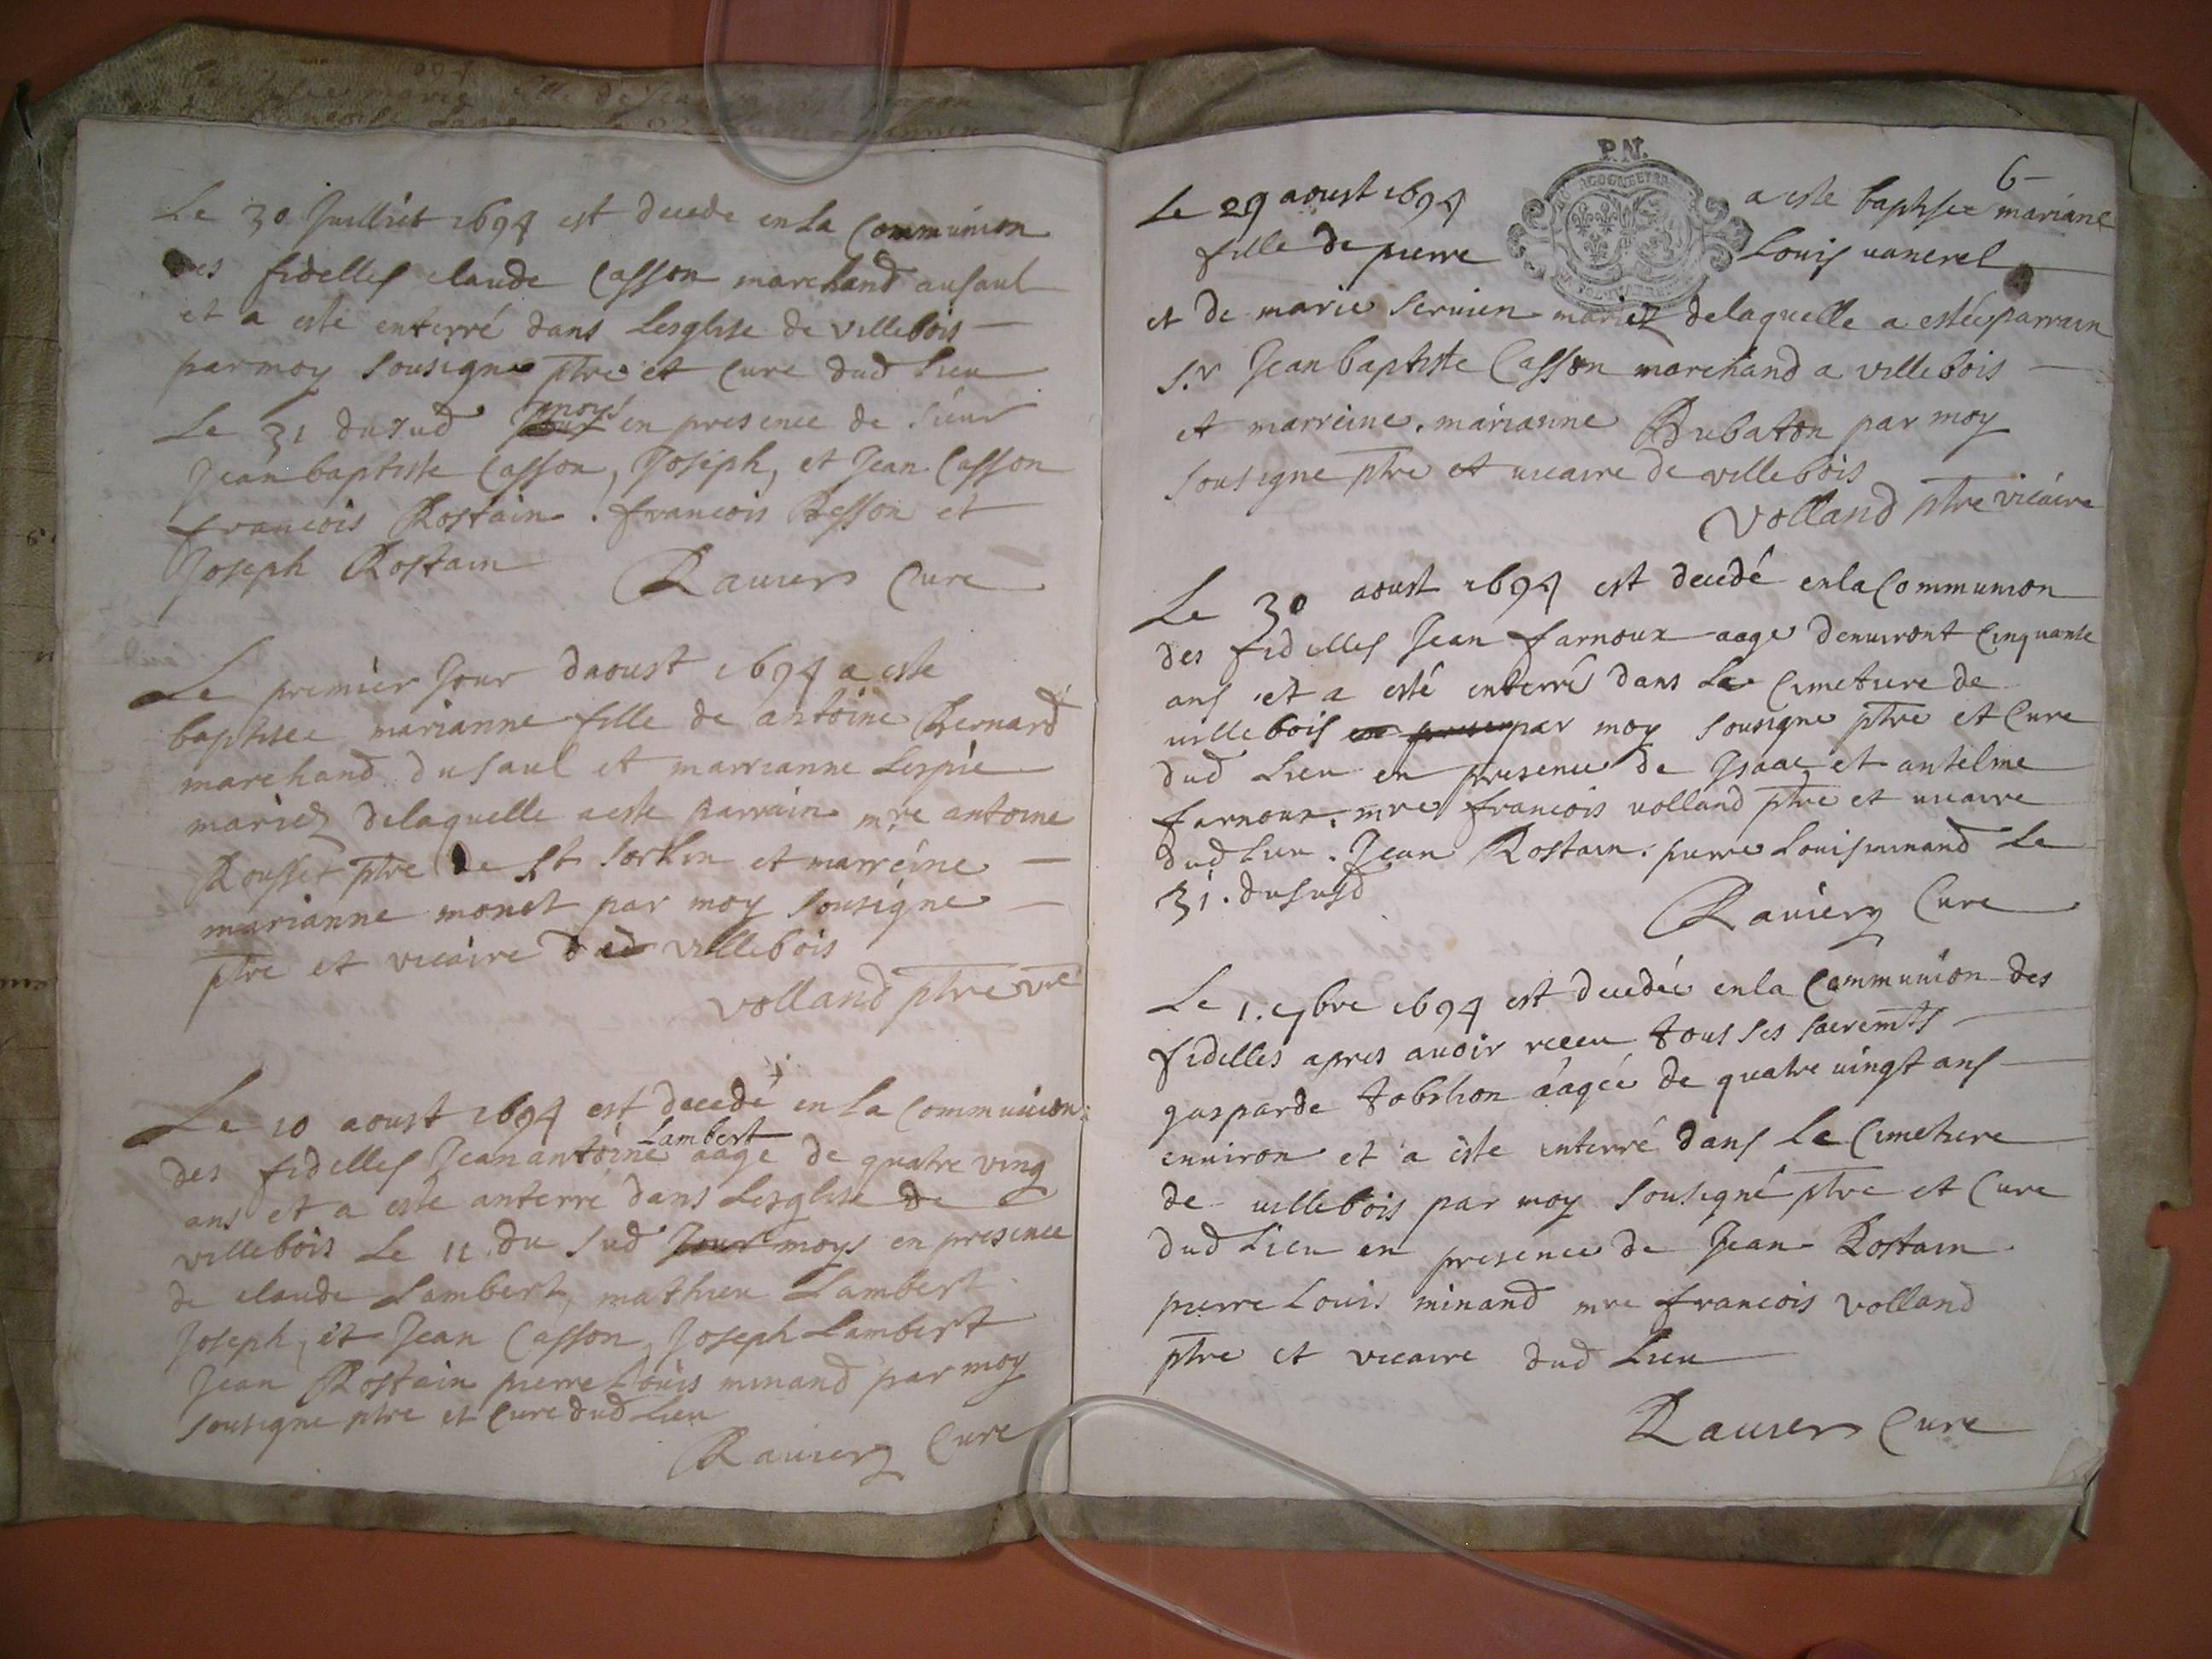 Le 30 Juilliet 1694 est decede en La Communion
des fidelles claude Casson marchand au saul
et a esté enterré dans Lesglise de villebois
par moy sousigne ptre et Cure dud Lieu
Le 31 du sud moys en presence de sieur
Jean baptiste Casson, Joseph, et Jean Casson
francois Rostain. francois Besson et
Joseph Rostain
Raviers Cure
Le premier Jour daoust 1694 a este
baptisee marianne fille de antoine Bernard
marchand du saul et marrianne Lespie
mariez delaquelle a este parrain mre antoine
Rousset ptre de St Sorlin et marréine
marianne monet par moy sousigne
ptre et vicaire dud villebois
volland ptre vre
Le 10 aoust 1694 est decedé en La Communion
Lambert
des fidelles Jean antoine aage de quatre ving
ans et a este anterré dans Lesglise de
villebois Le 11 du sud Jour moys en presence
de claude Lambert, mathieu Lambert
Joseph, et Jean Casson, Joseph Lambert
Jean Rostain pierre Louis minand par moy
sousigne ptre et Cure dud Lieu
Raviers Cure
6
P.N.
Le 29 aoust 1694 a este baptisee mariane
fille de pierre Louis vanerel
et de marie servien mariez delaquelle a esté parrain
S.r Jean baptiste Casson marchand a villebois
et marreine. marianne Dubaton par moy
sousigne ptre et vicaire de villebois
volland ptre vicaire
Le 30 aoust 1694 est decedé en la Communion
des fidelles Jean farnoux aage denviront Cinquante
ans et a esté enterré dans Le Cimetiere de
villebois par moy sousigne ptre et Cure
dud Lieu en presence de Jsaac et antelme
farnoux. mre francois volland ptre et vicaire
dud Lieu. Jean Rostain. pierre Louis minand Le
31. du susd
Raviers Cure
Le 1. 7bre 1694 est decedée en la Communion des
fidelles apres avoir receu tous ses sacremts
gasparde tobshon aagée de quatre vingt ans
environ et a este enterré dans Le Cimetiere
de villebois par moy sousigné ptre et Cure
dud Lieu en presence de Jean Rostain
pierre Louis minand mre francois volland
ptre et vicaire dud Lieu
Raviers Cure